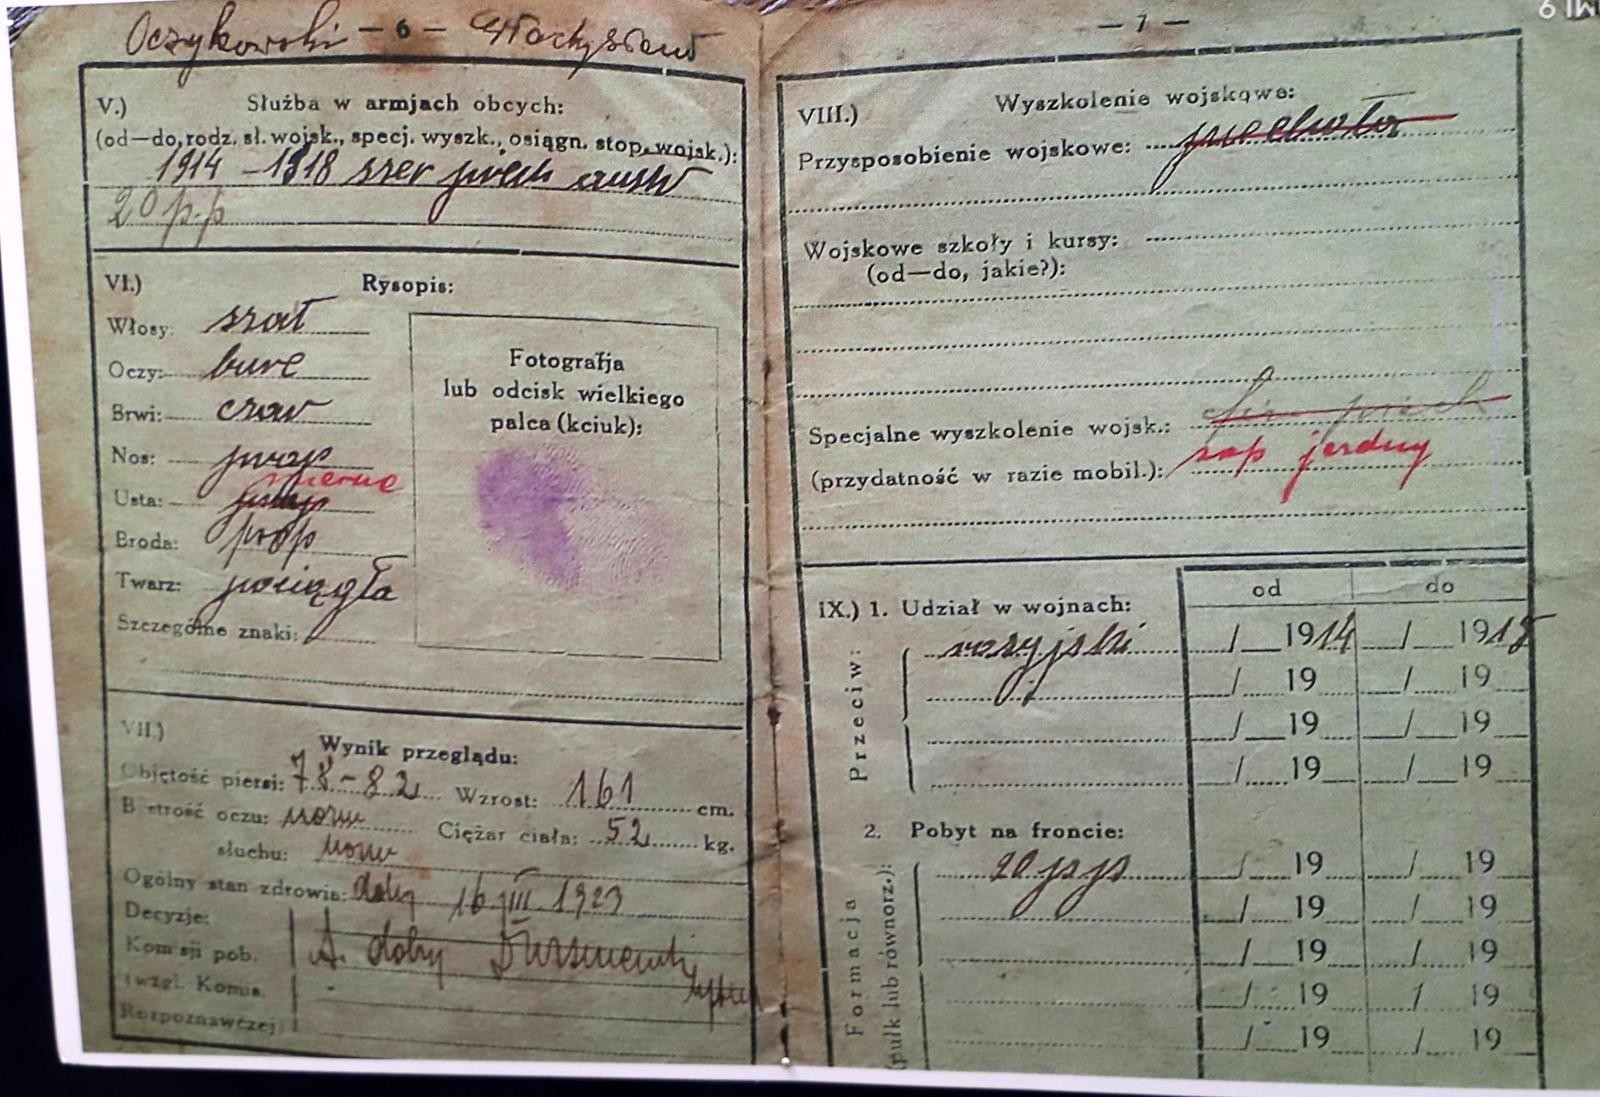 Oczykowski — 6 — Władysław
V.) Służba w armjach obcych:
(od—do, rodz. sł. wojsk., specj. wyszk., osiągn. stop. wojsk.):
1914 – 1918 szer piech austr
20 p.p
VI.) Rysopis:
Włosy: szat
Oczy: bure
Brwi: czar
Nos: prop
Usta: mierne
Broda: prop
Twarz: pociągła
Szczególne znaki:
Fotografja
lub odcisk wielkiego
palca (kciuk):
VII.)
Wynik przeglądu:
Objętość piersi: 78-82 Wzrost: 161 cm.
Bystrość oczu: norm Ciężar ciała: 52 kg.
słuchu: norm
Ogólny stan zdrowia: dobry 16 VIII 1923
Decyzje:
Komisji pob. A. dobry
(wzgl. Komis.
Rozpoznawczej)
— 7 —
VIII.) Wyszkolenie wojskowe:
Przysposobienie wojskowe: piechota
Wojskowe szkoły i kursy:
(od—do, jakie?):
Specjalne wyszkolenie wojsk.: piech
(przydatność w razie mobil.): jezdny
od do
IX.) 1. Udział w wojnach:
Przeciw: rosyjski / 1914 / 1918
/ 19 / 19
/ 19 / 19
/ 19 / 19
2. Pobyt na froncie:
Formacja
(pułk lub równorz.):
20 p p / 19 / 19
/ 19 / 19
/ 19 / 19
/ 19 / 19
/ 19 / 19